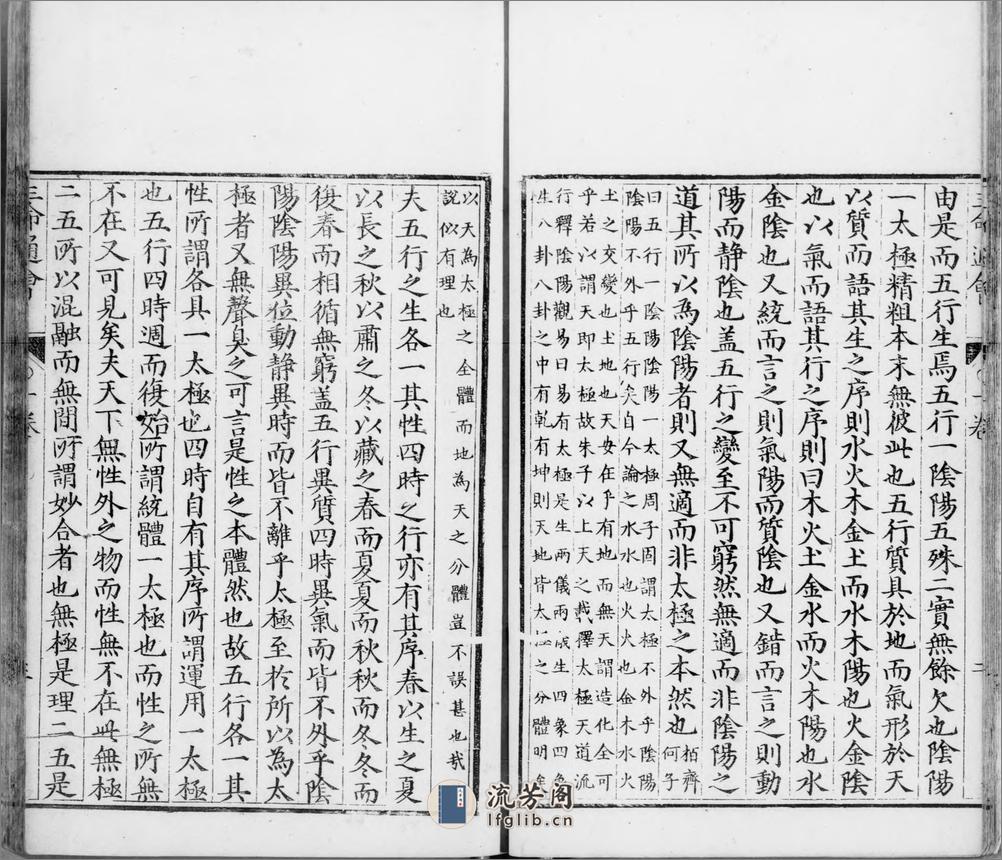 由是而五行生焉五行一陰陽五殊二實無餘欠也陰陽
一太極精粗本末無彼此也五行質具於地而氣形於天
以質而語其生之序則水火木金土而水木陽也火金陰
也以氣而語其行之序則曰木火土金水而火木陽也水
金陰也又統而言之則氣陽而質陰也又錯而言之則動
陽而静陰也盖五行之變至不可窮然無適而非陰陽之
道其所以為陰陽者則又無適而非太極之本然也
栢齊
何子
曰五行一陰陽陰陽一太極周子固謂太極不外乎陰陽
陰陽不外乎五行矣自今論之水水也火火也金木水火
土之交變也土地也天安在乎有地而無天謂造化全可
乎若以謂天即太極故朱子以上天之載釋太極天道流
行釋陰陽觀易曰易有太極是生兩儀兩儀生四象四象
生八卦八卦之中有乾有坤則天地皆太極之分體明矣
以天為太極之全體而地為天之分體豈不誤甚也哉
說似有理也
夫五行之生各一其性四時之行亦有其序春以生之夏
以長之秋以肅之冬以藏之春而夏夏而秋秋而冬冬而
復春而相循無窮盖五行異質四時異氣而皆不外乎陰
陽陰陽異位動静異時而皆不離乎太極至於所以為太
極者又無聲臭之可言是性之本體然也故五行各一其
性所謂各具一太極也四時自有其序所謂運用一太極
也五行四時週而復始所謂統體一太極也而性之所無
不在又可見矣夫天下無性外之物而性無不在此無極
二五所以混融而無間所謂妙合者也無極是理二五是
三命通會
一卷
二
流芳阁
lfglib.cn